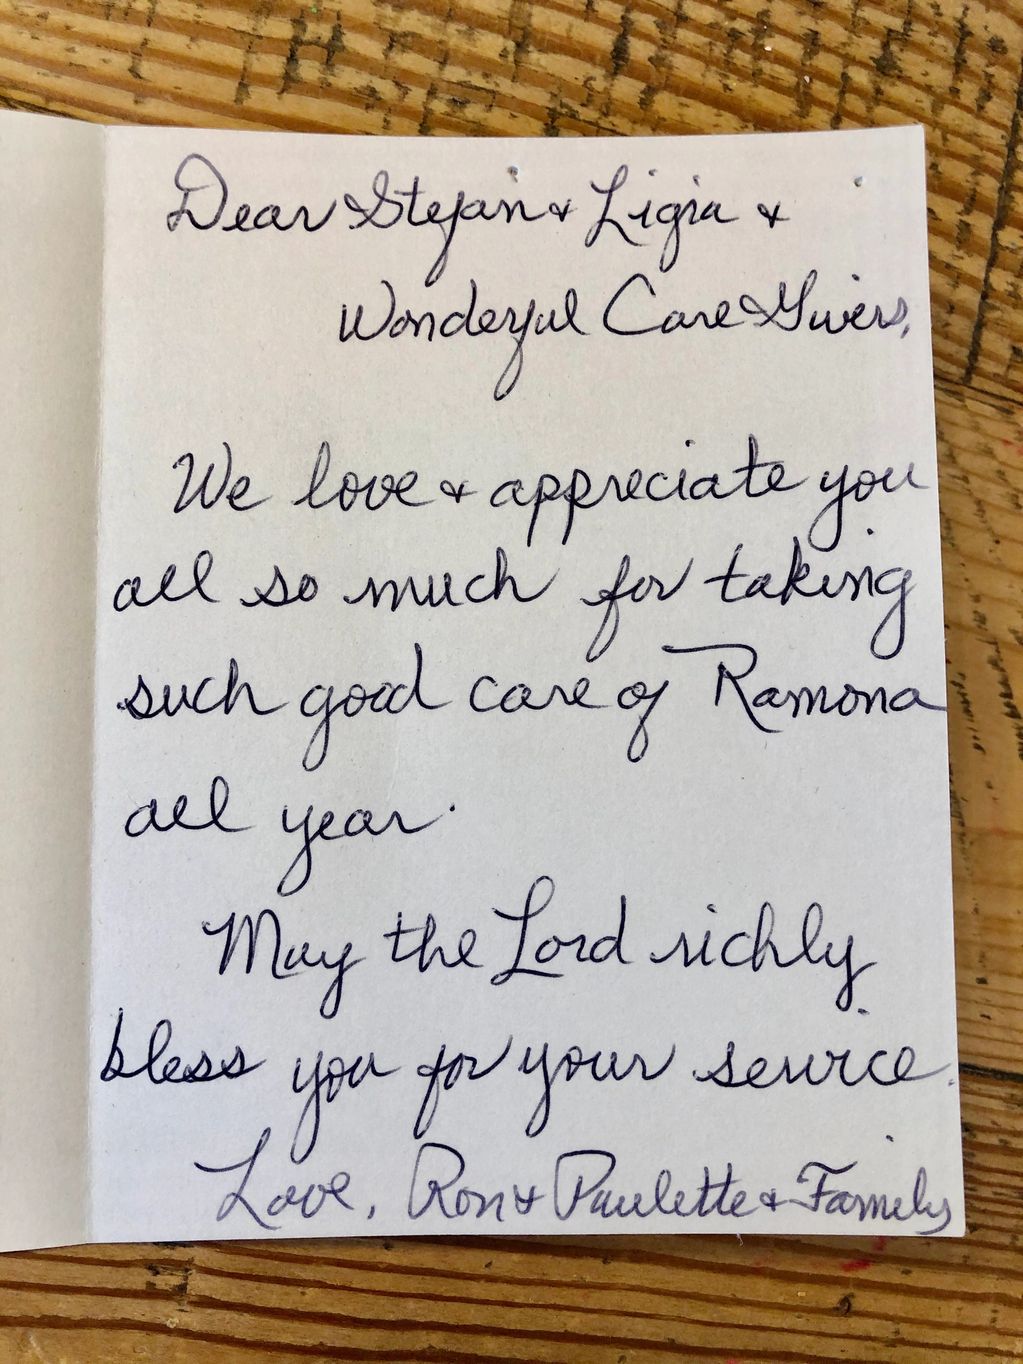 Dear Stefan & Ligia &
Wonderful Care Givers,
We love & appreciate you
all so much for taking
such good care of Ramona
all year.
May the Lord richly
bless you for your service.
Love, Ron & Paulette & Family